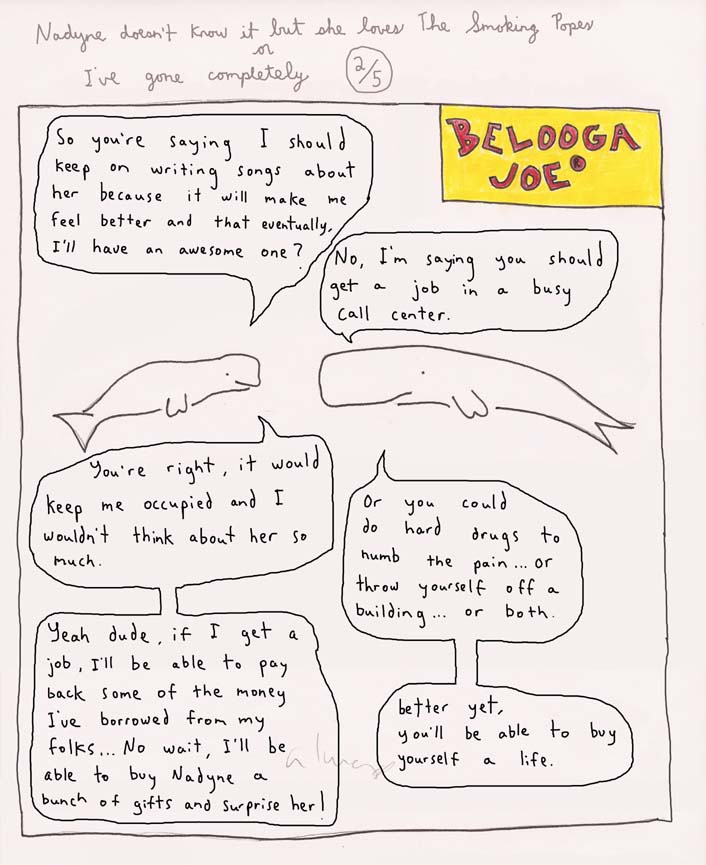 Nadyne doesn't know it but she loves The Smoking Popes
or
I've gone completely 2/5
BELOOGA
JOE®
So you're saying I should
keep on writing songs about
her because it will make me
feel better and that eventually,
I'll have an awesome one?
No, I'm saying you should
get a job in a busy
call center.
You're right, it would
keep me occupied and I
wouldn't think about her so
much.
Or you could
do hard drugs to
numb the pain... or
throw yourself off a
building... or both.
Yeah dude, if I get a
job, I'll be able to pay
back some of the money
I've borrowed from my
folks... No wait, I'll be
able to buy Nadyne a
bunch of gifts and surprise her!
better yet,
you'll be able to buy
yourself a life.